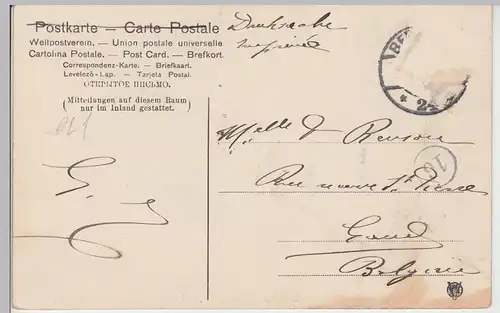 Postkarte — Carte Postale
Drucksache
Weltpostverein. — Union postale universelle
Cartolina Postale. — Post Card. — Brefkort.
Correspondenz-Karte. — Briefkaart.
Levelező-Lap. — Tarjeta Postal.
ОТКРЫТОЕ ПИСЬМО.
(Mitteilungen auf diesem Raum
nur im Inland gestattet.)
BE
* 2
10
Rue neuve St Pierre
Gand
Belgique